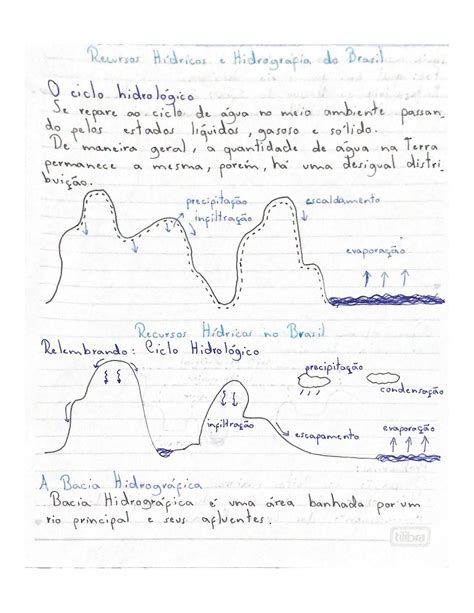 Recursos Hídricos e Hidrografia do Brasil
O ciclo hidrológico
Se repare ao ciclo de água no meio ambiente passan-
do pelos estados líquidos, gasoso e sólido.
De maneira geral, a quantidade de água na Terra
permanece a mesma, porém, há uma desigual distri-
buição.
precipitação
infiltração
escaldamento
evaporação
Recursos Hídricos no Brasil
Relembrando: Ciclo Hidrológico
precipitação
condensação
infiltração
escapamento
evaporação
A Bacia Hidrográfica
Bacia Hidrográfica é uma área banhada por um
rio principal e seus afluentes.
tilibra